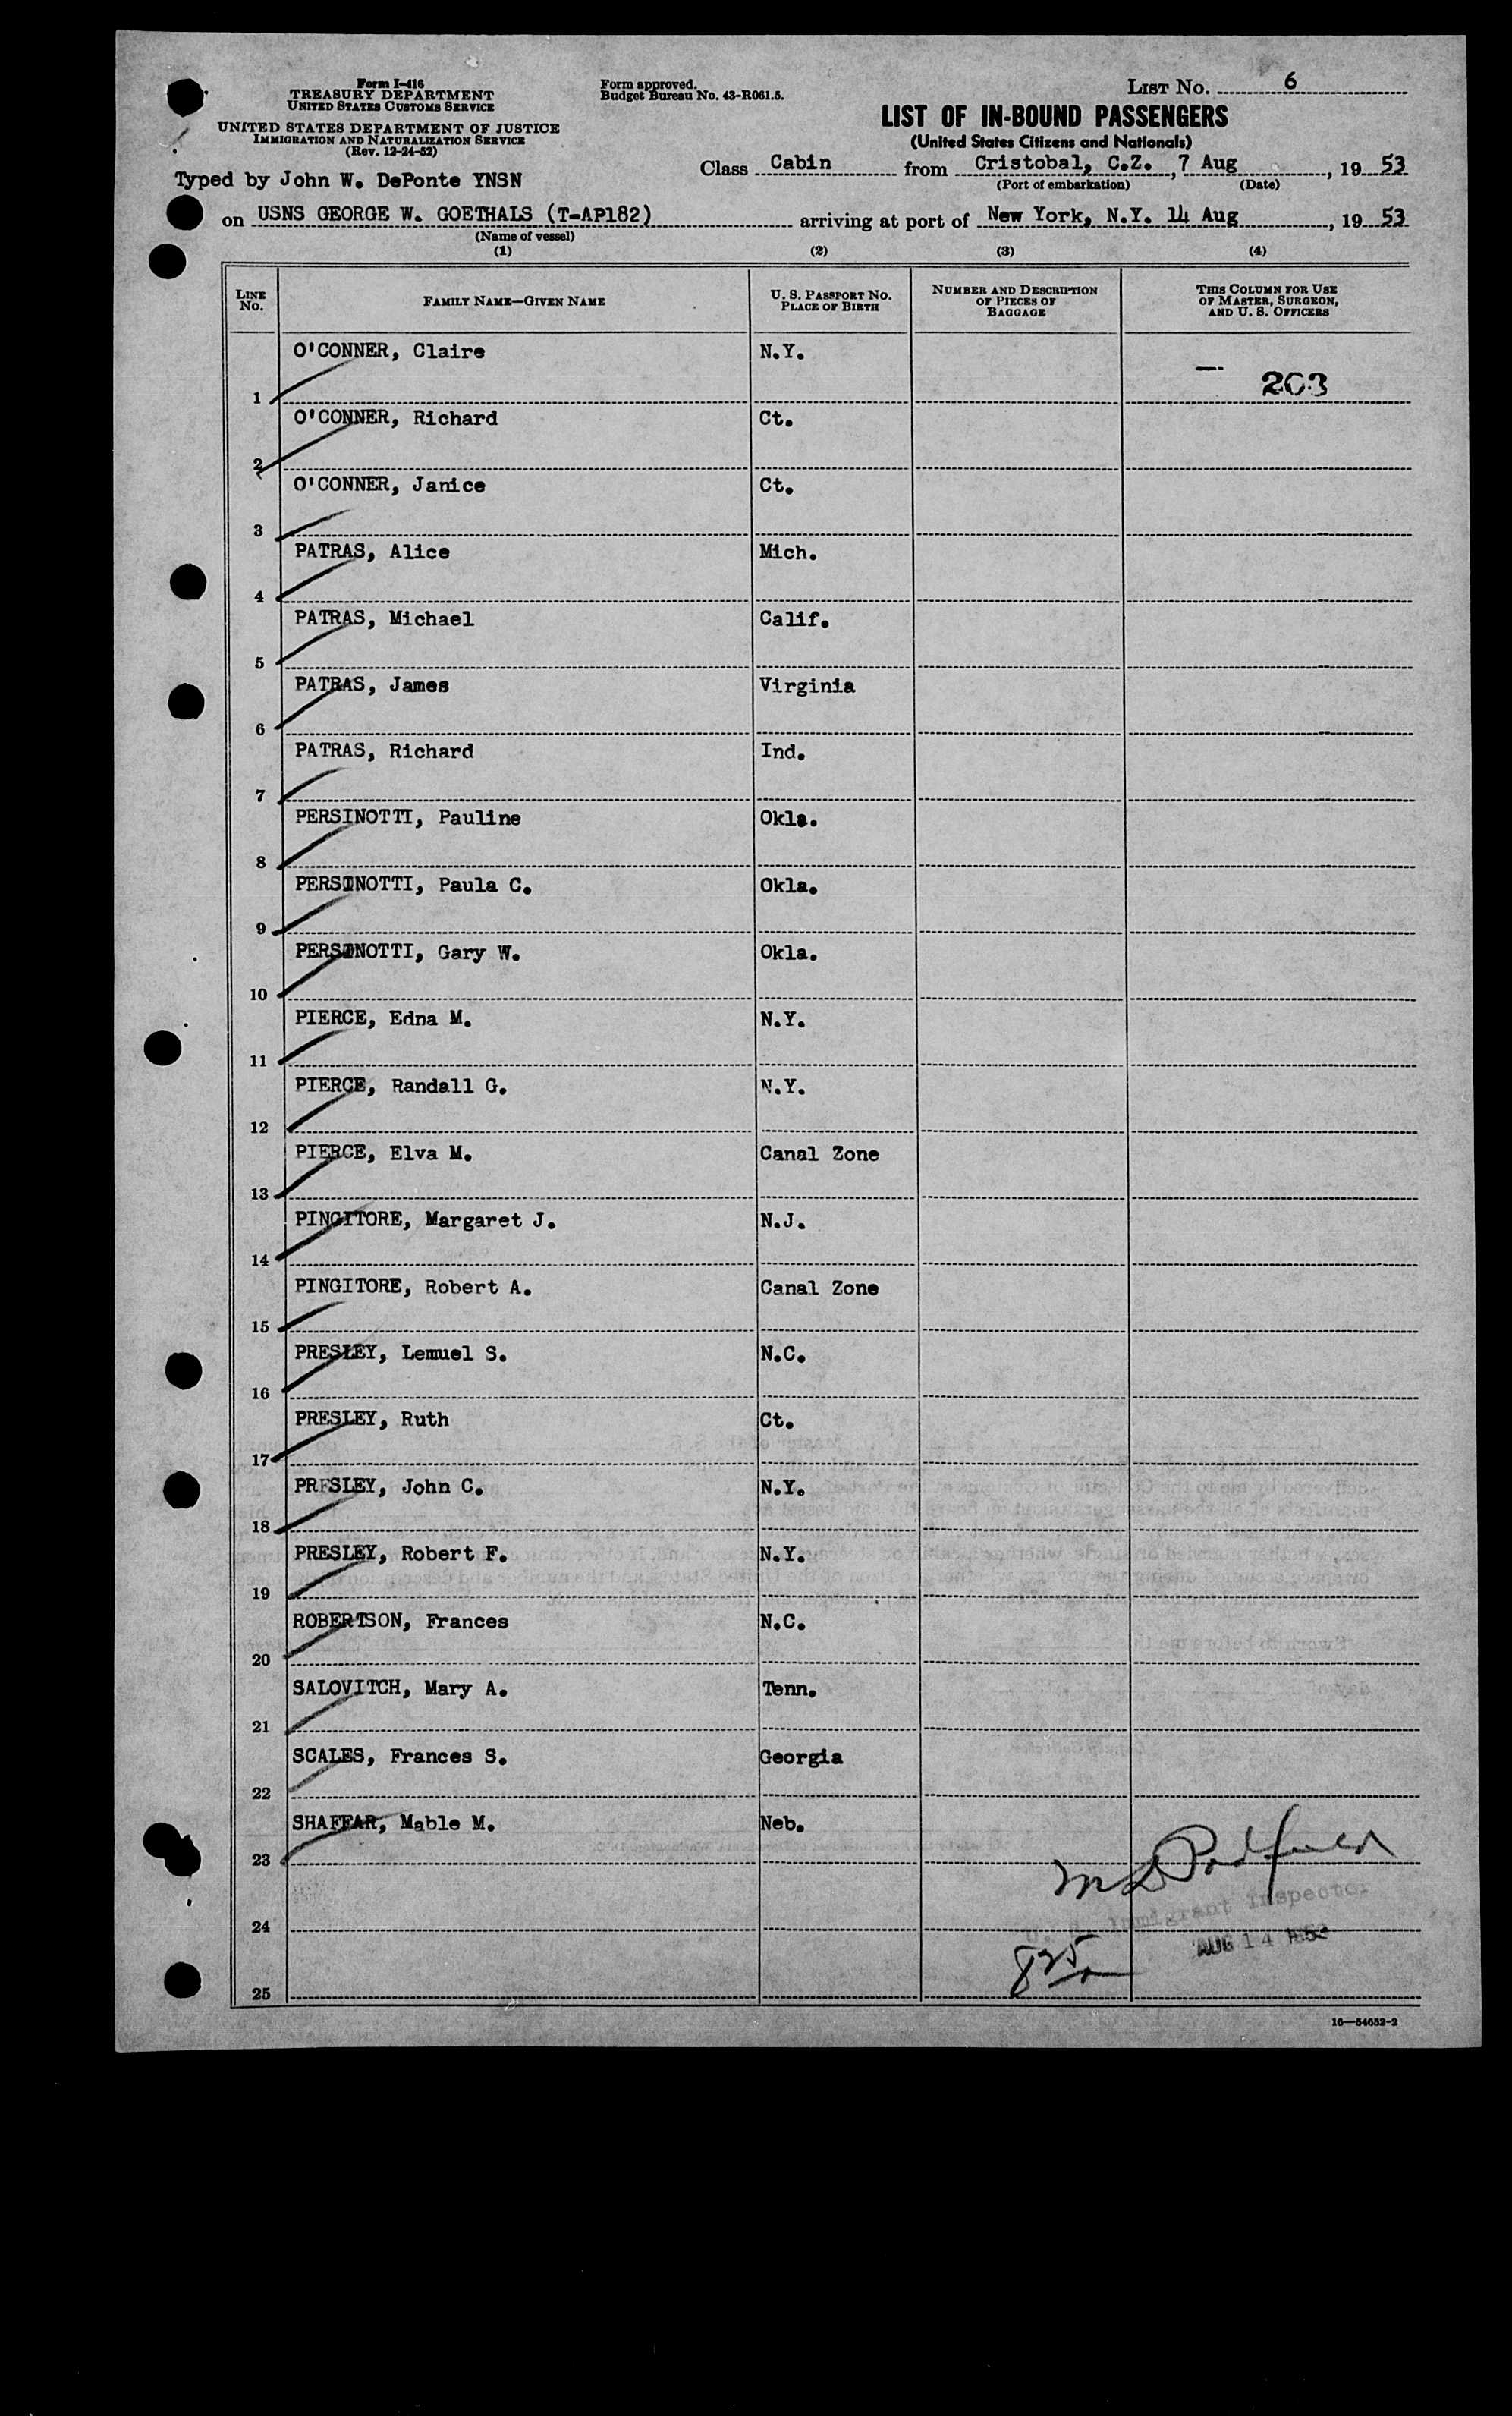 Form I-416
TREASURY DEPARTMENT
UNITED STATES CUSTOMS SERVICE
UNITED STATES DEPARTMENT OF JUSTICE
IMMIGRATION AND NATURALIZATION SERVICE
(Rev. 12-24-52)
Typed by John W. DePonte YNSN
Form approved.
Budget Bureau No. 43-R061.5.
LIST NO. 6
LIST OF IN-BOUND PASSENGERS
(United States Citizens and Nationals)
Class Cabin from Cristobal, C.Z. , 7 Aug , 19 53
(Port of embarkation) (Date)
on USNS GEORGE W. GOETHALS (T-AP182) arriving at port of New York, N.Y. 14 Aug , 19 53
(Name of vessel)
(1) (2) (3) (4)
LINE NO. FAMILY NAME—GIVEN NAME U. S. PASSPORT NO. PLACE OF BIRTH NUMBER AND DESCRIPTION OF PIECES OF BAGGAGE THIS COLUMN FOR USE OF MASTER, SURGEON, AND U. S. OFFICERS
1 O'CONNER, Claire N.Y. 203
2 O'CONNER, Richard Ct.
3 O'CONNER, Janice Ct.
4 PATRAS, Alice Mich.
5 PATRAS, Michael Calif.
6 PATRAS, James Virginia
7 PATRAS, Richard Ind.
8 PERSINOTTI, Pauline Okla.
9 PERSINOTTI, Paula C. Okla.
10 PERSINOTTI, Gary W. Okla.
11 PIERCE, Edna M. N.Y.
12 PIERCE, Randall G. N.Y.
13 PIERCE, Elva M. Canal Zone
14 PINGITORE, Margaret J. N.J.
15 PINGITORE, Robert A. Canal Zone
16 PRESLEY, Lemuel S. N.C.
17 PRESLEY, Ruth Ct.
18 PRESLEY, John C. N.Y.
19 PRESLEY, Robert F. N.Y.
20 ROBERTSON, Frances N.C.
21 SALOVITCH, Mary A. Tenn.
22 SCALES, Frances S. Georgia
23 SHAFFAR, Mable M. Neb.
U. S. Immigrant Inspector
24
AUG 14 1953
25
16—54652-2